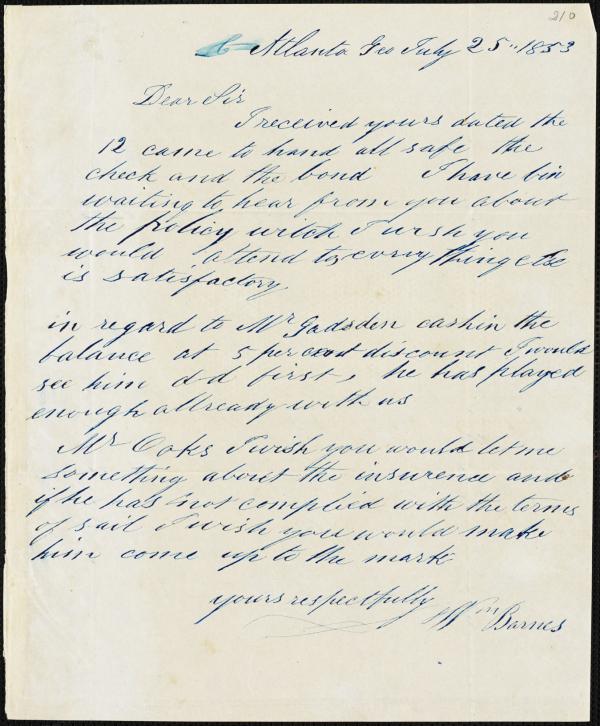 210
Atlanta Geo July 25" 1853
Dear Sir
I received yours dated the
12 came to hand all safe the
check and the bond I have bin
waiting to hear from you about
the policy witch I wish you
would attend to, every thing else
is satisfactory,
in regard to Mr Gadsden cashin the
balance at 5 per cent discount I would
see him d-d first, he has played
enough allready with us
Mr Oaks I wish you would let me
something about the insurence and
if he has not complied with the terms
of sail I wish you would make
him come up to the mark
yours respectfully
Wm Barnes